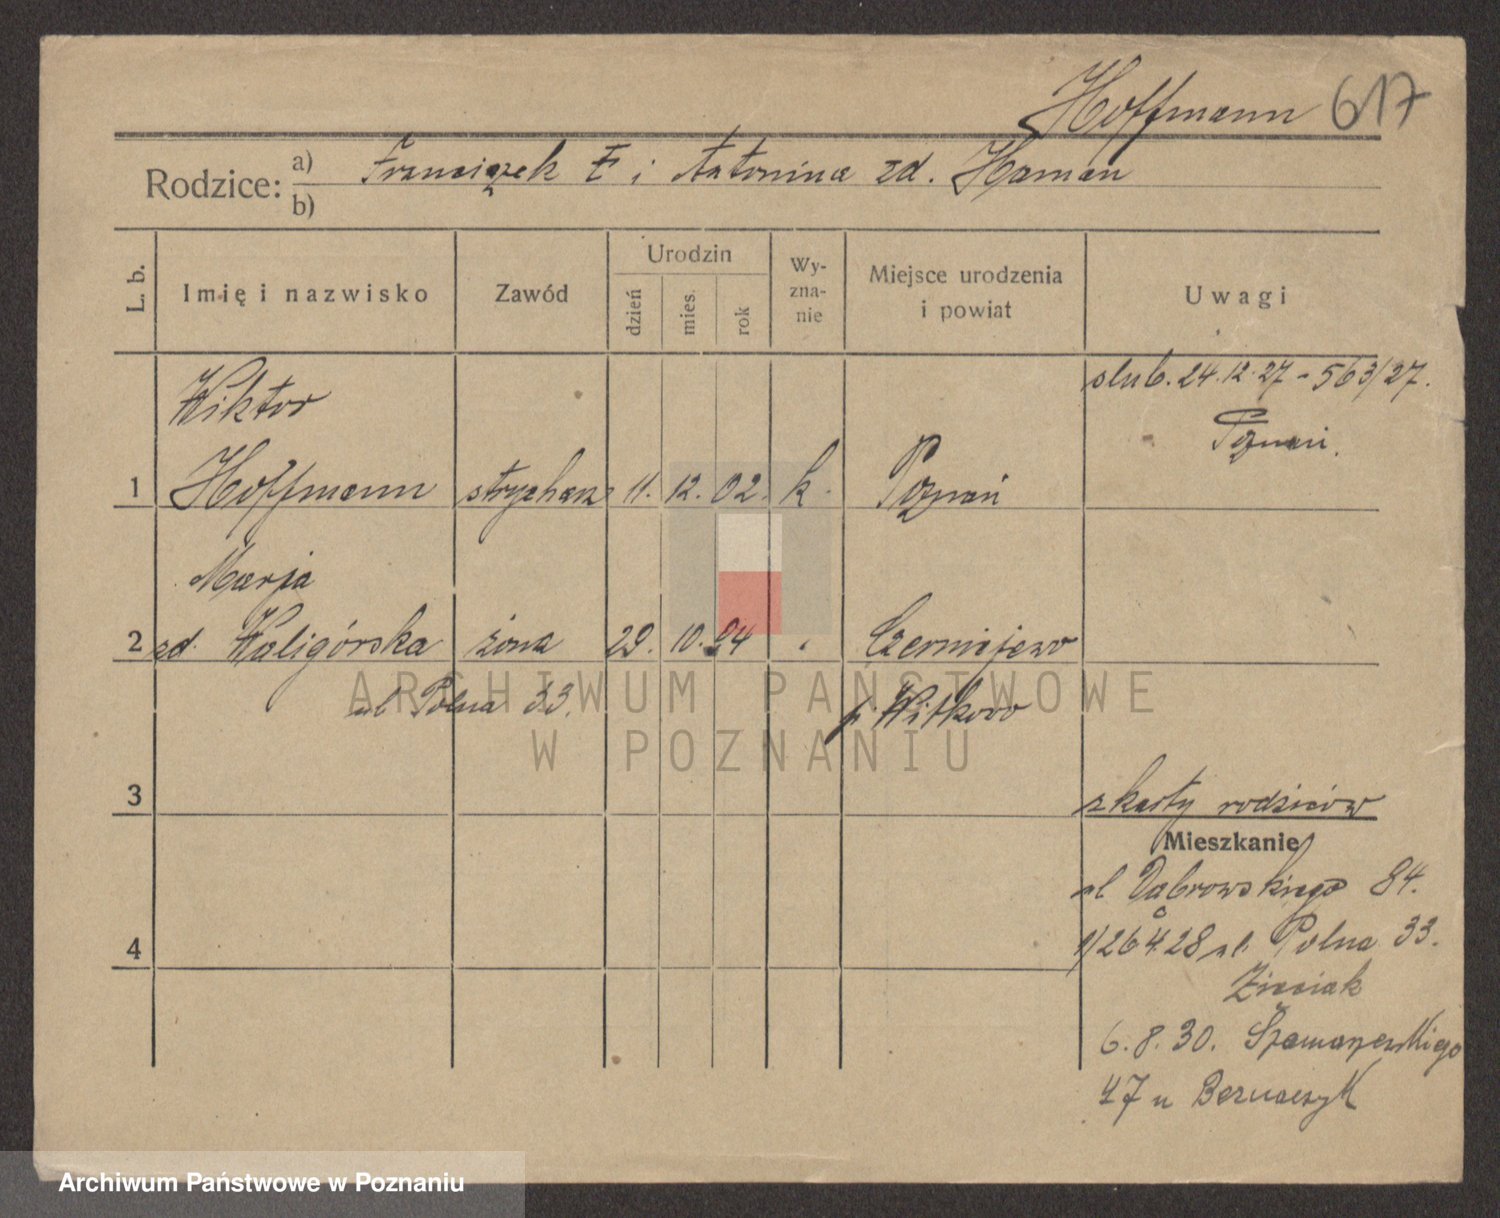 Hoffmann 617
Rodzice: a) Franciszek i Antonina zd. Haman
b)
L. b. Imię i nazwisko Zawód Urodzin dzień mies. rok Wy-zna-nie Miejsce urodzenia i powiat Uwagi
ślub. 24.12.27 - 563/27.
Poznań.
Wiktor
1 Hoffmann strycharz 11. 12. 02. k. Poznań
Marja
2 zd. Waligórska żona 29. 10. 04 Czerniejewo
ul Polna 33. p. Witkowo
ARCHIWUM PAŃSTWOWE
W POZNANIU
3
z karty rodziców
Mieszkanie
ul Dąbrowskiego 84.
4
1/26 4 28 ul. Polna 33.
6.8.30. Szamarzewskiego
47 u
Archiwum Państwowe w Poznaniu